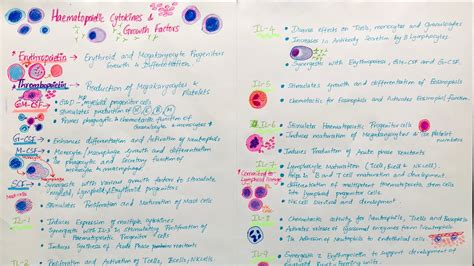 Haematopoietic Cytokines &
Growth Factors
Erythropoietin → Erythroid and Megakaryocyte Progenitors
Growth & Differentiation
Thrombopoietin → Production of Megakaryocytes &
Platelets
GM-CSF → myeloid progenitor cells
Stimulates production of
Primes phagocytic & chemotactic function of
Granulocytes & monocytes
G-CSF → Enhances differentiation and Activation of Neutrophils
M-CSF → Monocyte/macrophage growth and differentiation
phagocytic and secretory function of
monocyte & macrophage
SCF → Synergises with various growth factors to stimulate
myeloid, lymphoid/erythroid progenitors
Stimulates Proliferation and Maturation of Mast cells
IL-1 • Induces Expression of multiple cytokines
• Synergises with IL3 in Stimulating Proliferation of
Haematopoietic Progenitor Cells
• Induces Synthesis of Acute Phase reactants
IL-2 • Proliferation and Activation of Tcells, Bcells, NK cells
IL-4 • Diverse effects on Tcells, monocytes and Granulocytes
• Increases in Antibody Secretion by B lymphocytes
• Synergises with Erythropoietin, GM-CSF and G-CSF
IL-5 • Stimulates growth and differentiation of Eosinophils
• Chemotactic for Eosinophils and Activates Eosinophil function
IL-6 • Stimulates Haematopoietic Progenitor cells
• Induces maturation of Megakaryocytes and Platelet
numbers
• Induces Production of Acute phase reactants
IL-7 • Lymphocyte Maturation (T cell, B cell & NK cell)
Committed to
Lymphoid lineage
• Helps in B and T cell maturation and development
• Differentiation of multipotent hematopoietic stem cells
to lymphoid progenitor cells
• NK cell Survival and development
IL-8 • Chemotactic activity for Neutrophils, Tcells and Basophils
• Activates release of lysosomal enzymes from Neutrophils
• Adhesion of Neutrophils to endothelial cells
IL-9 • Synergises & Erythropoietin to Support development of